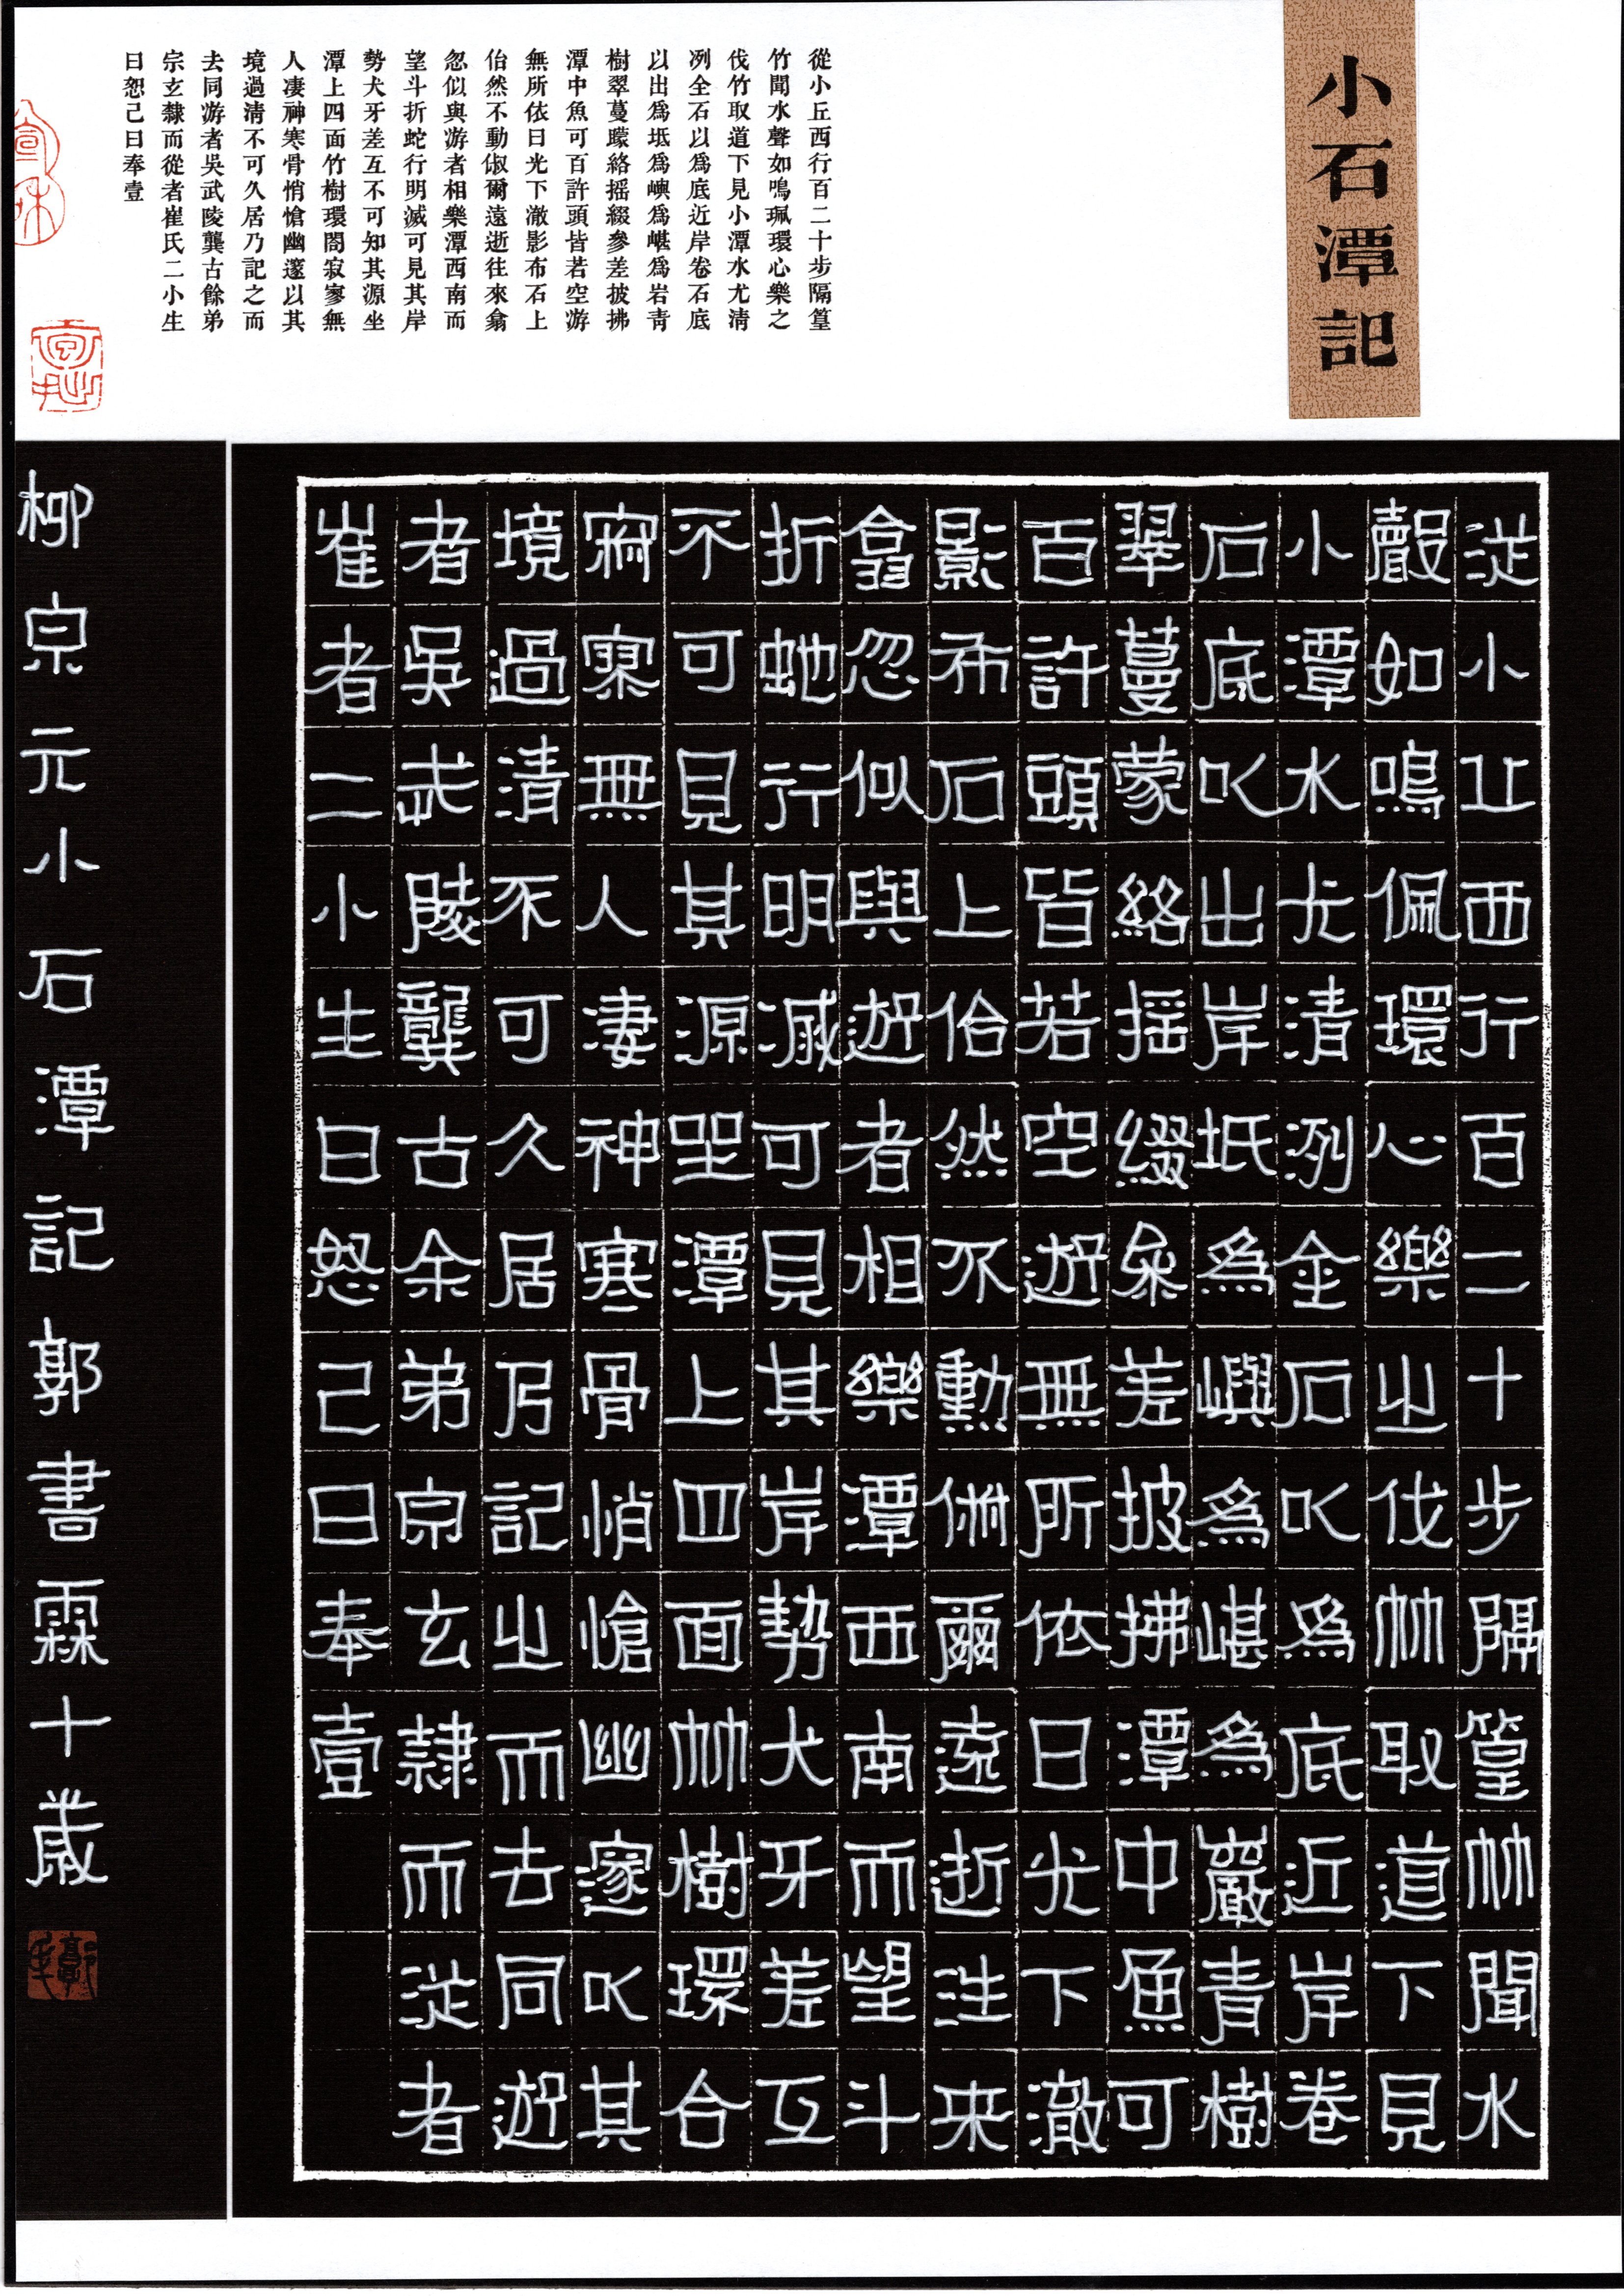 小石潭記
從小丘西行百二十步隔篁
竹聞水聲如鳴珮環心樂之
伐竹取道下見小潭水尤清
冽全石以爲底近岸卷石底
以出爲坻爲嶼爲嵁爲岩青
樹翠蔓曚絡摇綴參差披拂
潭中魚可百許頭皆若空游
無所依日光下澈影布石上
佁然不動俶爾遠逝往來翕
忽似與游者相樂潭西南而
望斗折蛇行明滅可見其岸
勢犬牙差互不可知其源坐
潭上四面竹樹環閤寂寥無
人凄神寒骨悄愴幽邃以其
境過清不可久居乃記之而
去同游者吳武陵龔古餘弟
宗玄隸而從者崔氏二小生
曰恕己曰奉壹
從小丘西行百二十步隔篁竹聞水
聲如鳴佩環心樂之伐竹取道下見
小潭水尤清冽金石以爲底近岸卷
石底以出岸坻爲嶼爲嵁爲巖青樹
翠蔓蒙絡摇綴參差披拂潭中魚可
百許頭皆若空遊無所依日光下澈
影布石上佁然不動俶爾遠逝往来
翕忽似與遊者相樂潭西南而望斗
折蛇行明滅可見其岸勢犬牙差互
不可見其源坐潭上四面竹樹環合
寂寥無人凄神寒骨悄愴幽邃以其
境過清不可久居乃記之而去同遊
者吳武陵龔古余弟宗玄隸而從者
崔者二小生曰恕己曰奉壹
柳宗元小石潭記郭書霖十歲